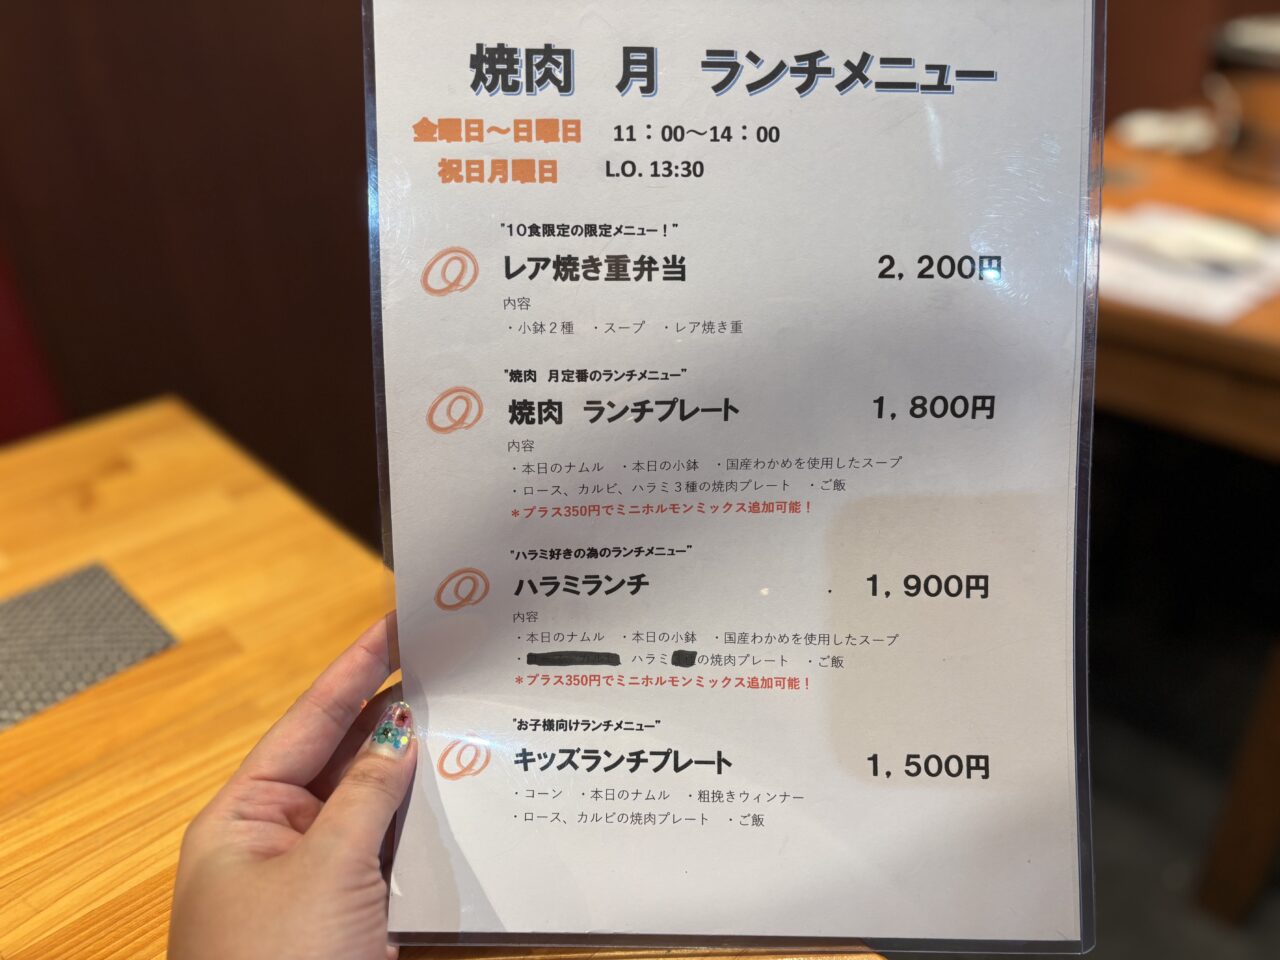 焼肉　月　ランチメニュー
金曜日～日曜日　11：00～14：00
祝日月曜日　L.O. 13:30
"10食限定の限定メニュー！"
レア焼き重弁当　2，200円
内容
・小鉢２種　・スープ　・レア焼き重
"焼肉　月定番のランチメニュー"
焼肉　ランチプレート　1，800円
内容
・本日のナムル　・本日の小鉢　・国産わかめを使用したスープ
・ロース、カルビ、ハラミ３種の焼肉プレート　・ご飯
＊プラス350円でミニホルモンミックス追加可能！
"ハラミ好きの為のランチメニュー"
ハラミランチ　1，900円
内容
・本日のナムル　・本日の小鉢　・国産わかめを使用したスープ
・ハラミの焼肉プレート　・ご飯
＊プラス350円でミニホルモンミックス追加可能！
"お子様向けランチメニュー"
キッズランチプレート　1，500円
・コーン　・本日のナムル　・粗挽きウィンナー
・ロース、カルビの焼肉プレート　・ご飯